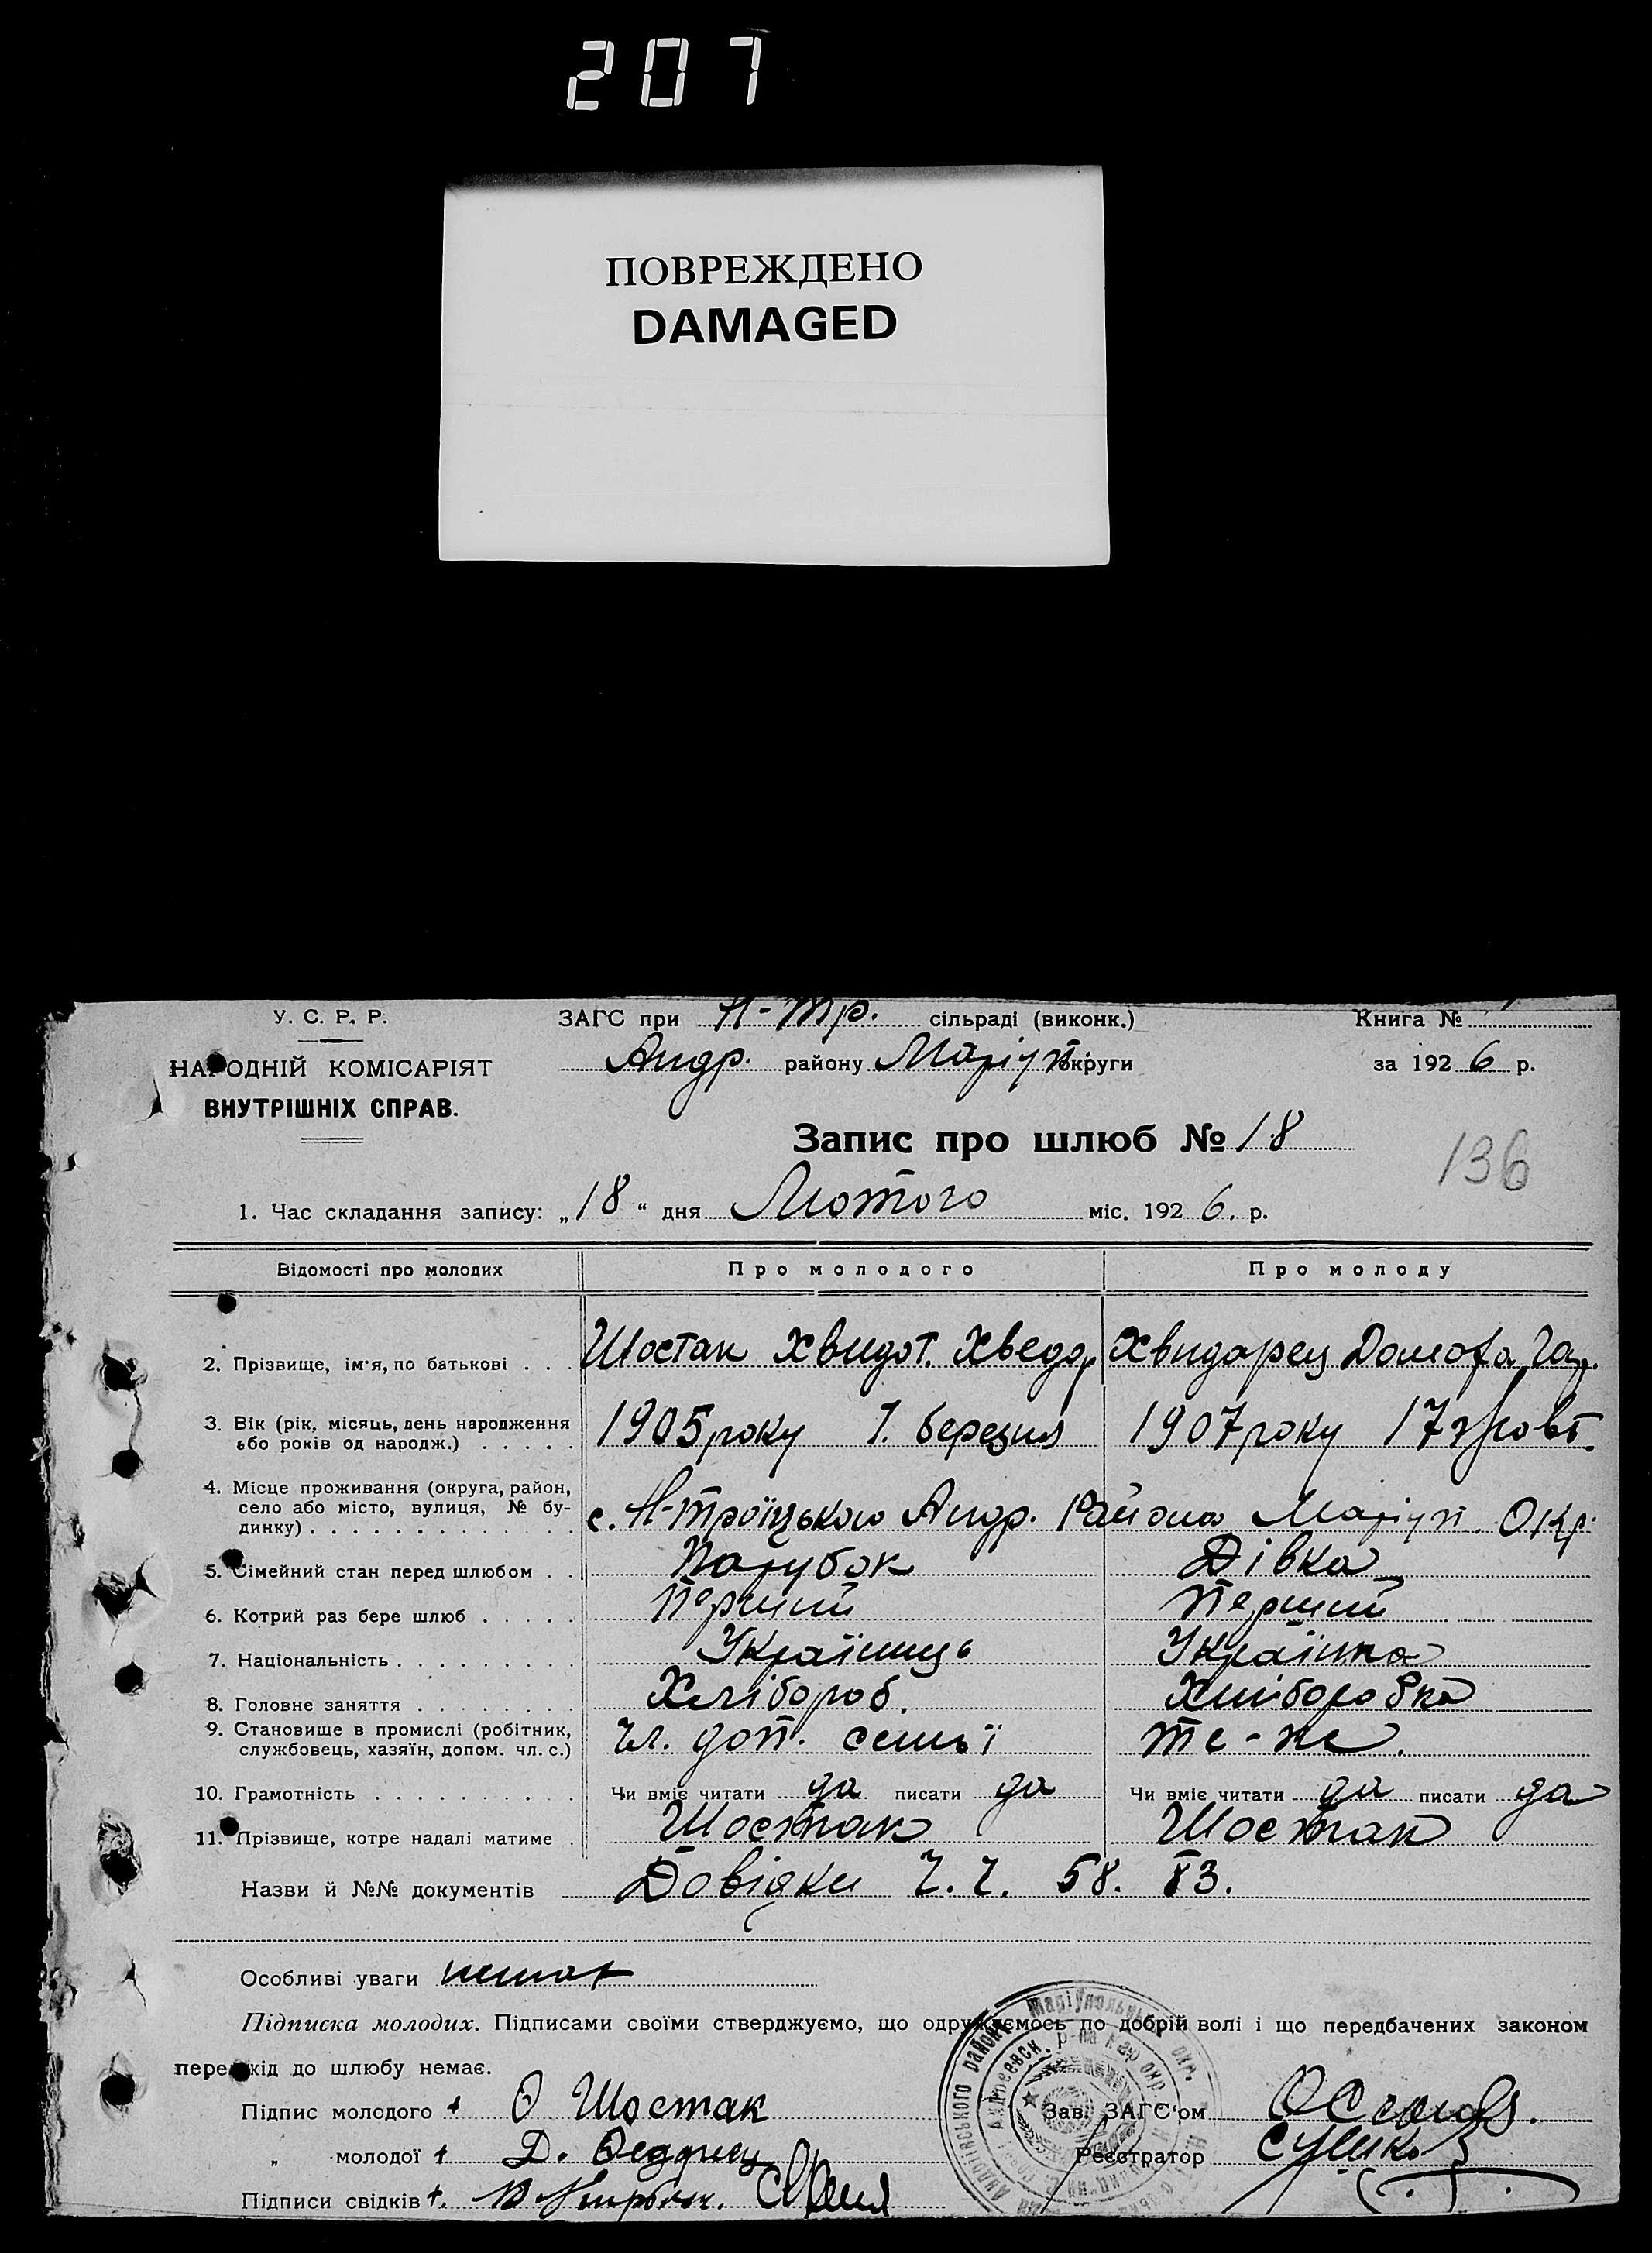 207
ПОВРЕЖДЕНО
DAMAGED
У. С. Р. Р.
НАРОДНІЙ КОМІСАРІЯТ
ВНУТРІШНІХ СПРАВ.
ЗАГС при Н-Тр. сільраді (виконк.)
Андр. району Маріуп. округи
Книга №
за 1926 р.
Запис про шлюб № 18
136
1. Час складання запису: „18“ дня Лютого міс. 1926. р.
Відомості про молодих Про молодого Про молоду
2. Прізвище, ім'я, по батькові . . . Шостак Хвидот. Хведор Хвидорец Домоха
3. Вік (рік, місяць, день народження або років од народж.) . . . . . 1905 року 1. березня 1907 року 17 Жовт.
4. Місце проживання (округа, район, село або місто, вулиця, № будинку) . . . с. Н-Троїцького Андр. Района Маріуп. Окр.
5. Сімейний стан перед шлюбом . . Парубок Дівка
6. Котрий раз бере шлюб . . . . . Перший Перший
7. Національність . . . . . . . . . Українець Українка
8. Головне заняття . . . . . . . . Хлібороб. Хліборобка
9. Становище в промислі (робітник, службовець, хазяїн, допом. чл. с.) Чл. доп. семьї те-же.
10. Грамотність . . . . . . . . . . Чи вміє читати да писати да Чи вміє читати да писати да
11. Прізвище, котре надалі матиме . Шостак Шостак
Назви й №№ документів Довідки Ч.Ч. 58. 83.
Особливі уваги немає
Підписка молодих. Підписами своїми стверджуємо, що одружуємось по добрій волі і що передбачених законом
перешкід до шлюбу немає.
Підпис молодого + Ѳ Шостак
Зав. ЗАГС'ом
„ молодої + Д.
Реєстратор
Підписи свідків +.